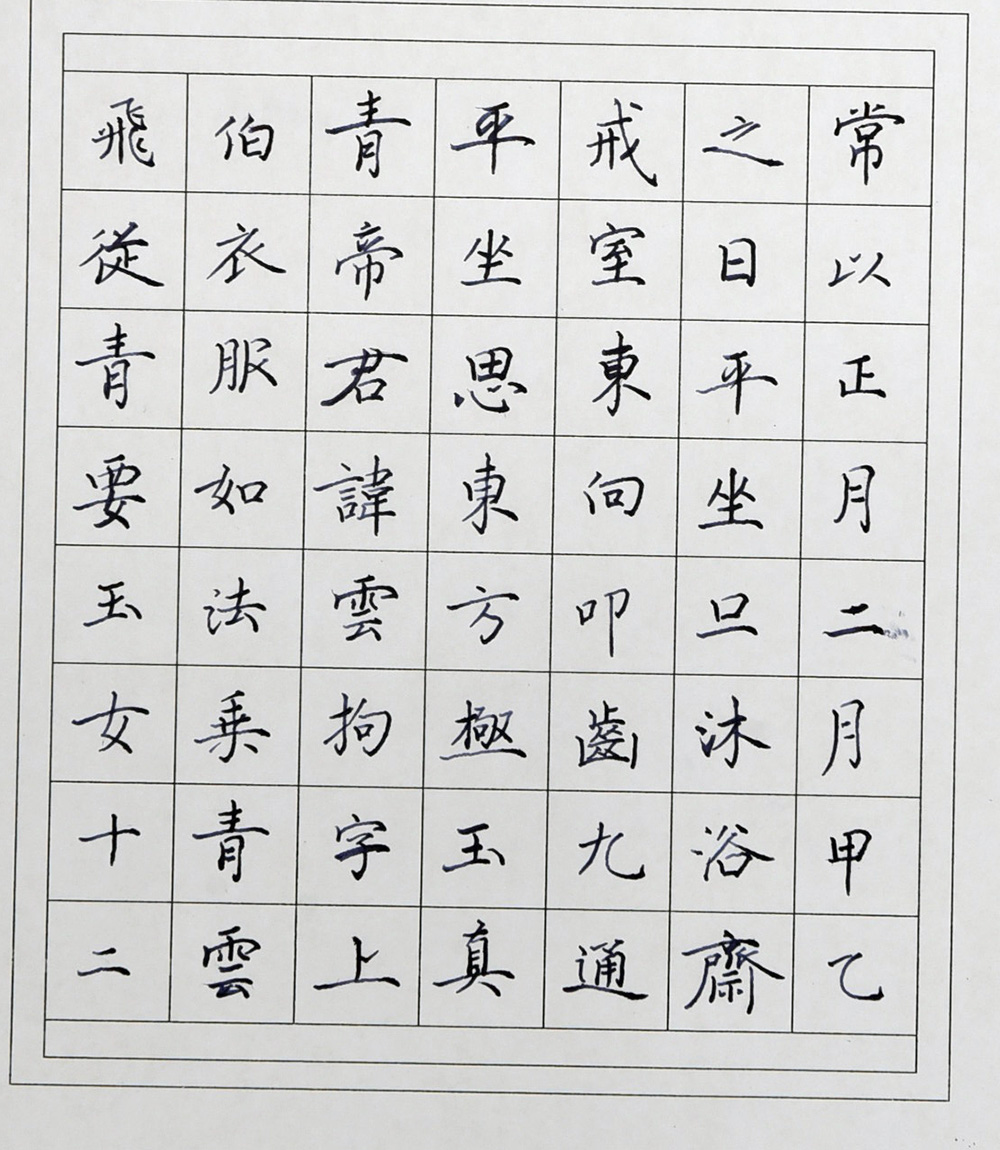 常以正月二月甲乙
之日平坐旦沐浴齋
戒室東向叩齒九通
平坐思東方極玉真
青帝君諱雲拘字上
伯衣服如法乗青雲
飛從青要玉女十二